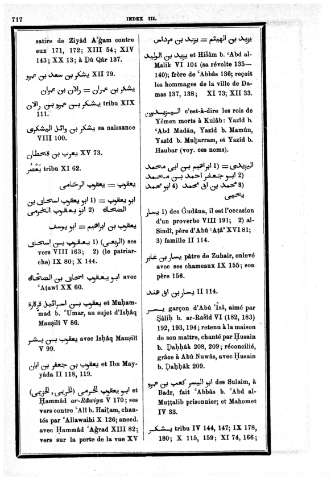 717
INDEX III.
satire de Ziyâd A'ǵam contre
eux 171, 172; XIII 54; XIV
143; XX 13; à Dû Qâr 137.
يشكر بن سعد بن عمرو XII 79.
يشكر بن عمران = رالان بن عمران
يشكر بن عمرو بن رالان tribu XIX
111.
يشكر بن وائل اليشكرى sa naissance
VIII 100.
يعرب بن قحطان XV 73.
يعصر tribu XI 62.
يعقوب = يعقوب الرخامى
يعقوب = 1) ابو يعقوب اسحاق بن
الضحاك 2) ابو يعقوب الخريمى
يعقوب بن ابراهيم = ابو يوسف
يعقوب بن اسحق (الربعى) 1) ses
vers VIII 163; 2) (le patriar-
che) IX 80; X 144.
يعقوب بن اسحاق بن الضحاك avec
'Aṭawî XX 60.
يعقوب بن اسرائيل قرقارة et Muḥam-
mad b. 'Umar, au sujet d'Isḥâq
Mauṣilî V 86.
يعقوب بن بشر avec Isḥâq Mauṣilî
V 99.
يعقوب بن جعفر بن ابان et Ibn May-
yâda II 118, 119.
ابو يعقوب الخرمى (الخريمى) et
Ḥammâd ar-Râwiya V 170; ses
vers contre 'Alî b. Haiṯam, chan-
tés par 'Allawaihi X 126; aneed.
avec Ḥammâd 'Aǵrad XIII 82;
vers sur la perte de la vue XV
يزيد بن الهيثم = يزيد بن مرداس
يزيد بن الوليد et Hišâm b. 'Abd al-
Malik VI 104 (sa révolte 135—
140); frère de 'Abbâs 136; reçoit
les hommages de la ville de Da-
mas 137, 138; XI 73; XII 33.
اليزيديون c'est-à-dire les rois de
Yémen morts à Kulâb: Yazîd b.
'Abd Madân, Yazîd b. Mamûn,
Yazîd b. Muḥarram, et Yazîd b.
Haubar (voy. ces noms).
اليزيدى = 1) ابراهيم بن ابى محمد
2) ابو جعفر احمد بن محمد
3) محمد بن ابى محمد 4) ابو محمد
يحيى
يسار 1) des Ġudâna, il est l'occasion
d'un proverbe VIII 191; 2) al-
Sindî, père d'Abû 'Aṭâ' XVI 81;
3) famille II 114.
يسار بن عابر pâtre de Zuhair, enlevé
avec ses chameaux IX 155; son
père 156.
يسار بن ابى هند II 114.
يسر garçon d'Abû 'Îsâ, aimé par
Ṣâliḥ b. ar-Rašîd VI (182, 183)
192, 193, 194; retenu à la maison
de son maître, chanté par Ḥusain
b. Ḍaḥḥâk 208, 209; réconcilié,
grâce à Abû Nuwâs, avec Ḥusain
b. Ḍaḥḥâk 209.
ابو اليسر كعب بن عمرو des Sulaim, à
Badr, fait 'Abbâs b. 'Abd al-
Muṭṭalib prisonnier; et Mahomet
IV 33.
يشكر tribu IV 144, 147; IX 178,
180; X 115, 159; XI 74, 166;